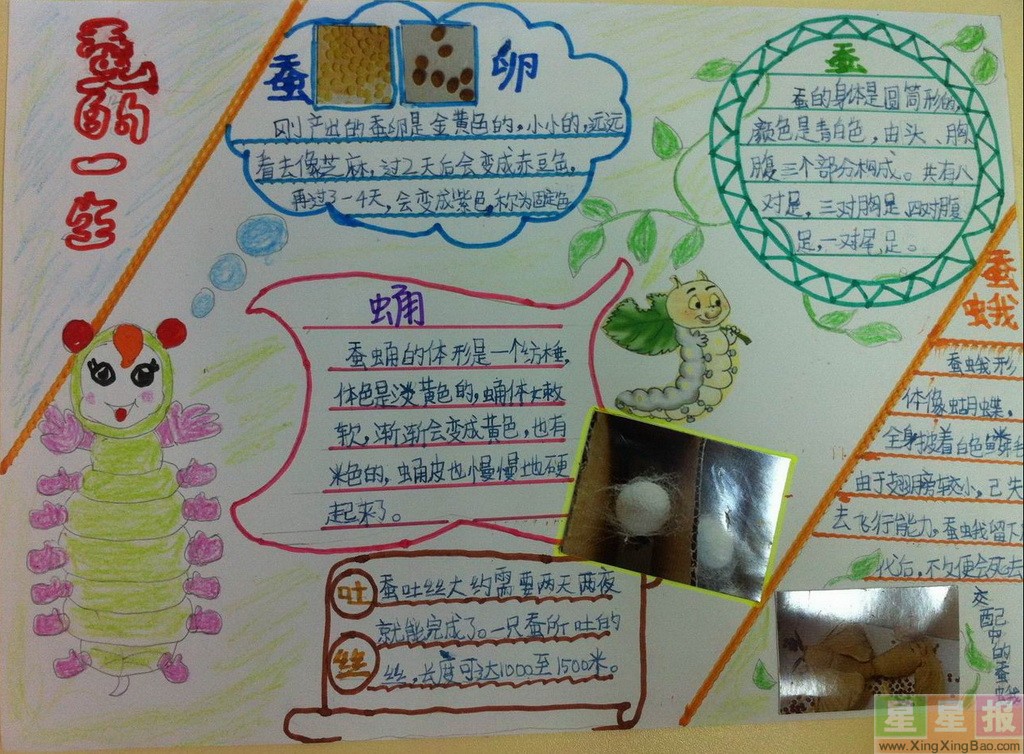 蚕的一生
蚕卵
刚产出的蚕卵是金黄色的,小小的,远远
看去像芝麻,过2天后会变成赤豆色,
再过3-4天,会变成紫色,称为固定色
蚕
蚕的身体是圆筒形的,
颜色是青白色,由头、胸
腹三个部分构成。共有八
对足,三对胸足四对腹
足,一对尾足。
蛹
蚕蛹的体形是一个纺棰,
体色是淡黄色的,蛹体大敕
软,渐渐会变成黄色,也有
米色的,蛹皮也慢慢地硬
起来了。
吐丝
蚕吐丝大约需要两天两夜
就能完成了。一只蚕所吐的
丝,长度可达1000至1500米。
蚕蛾
蚕蛾形
体像蝴蝶,
全身披着白色鳞毛
由于翅膀较小,已失
去飞行能力。蚕蛾留下
代后,不久便会死去
交配中的蚕蛾
星星报
www.XingXingBao.com